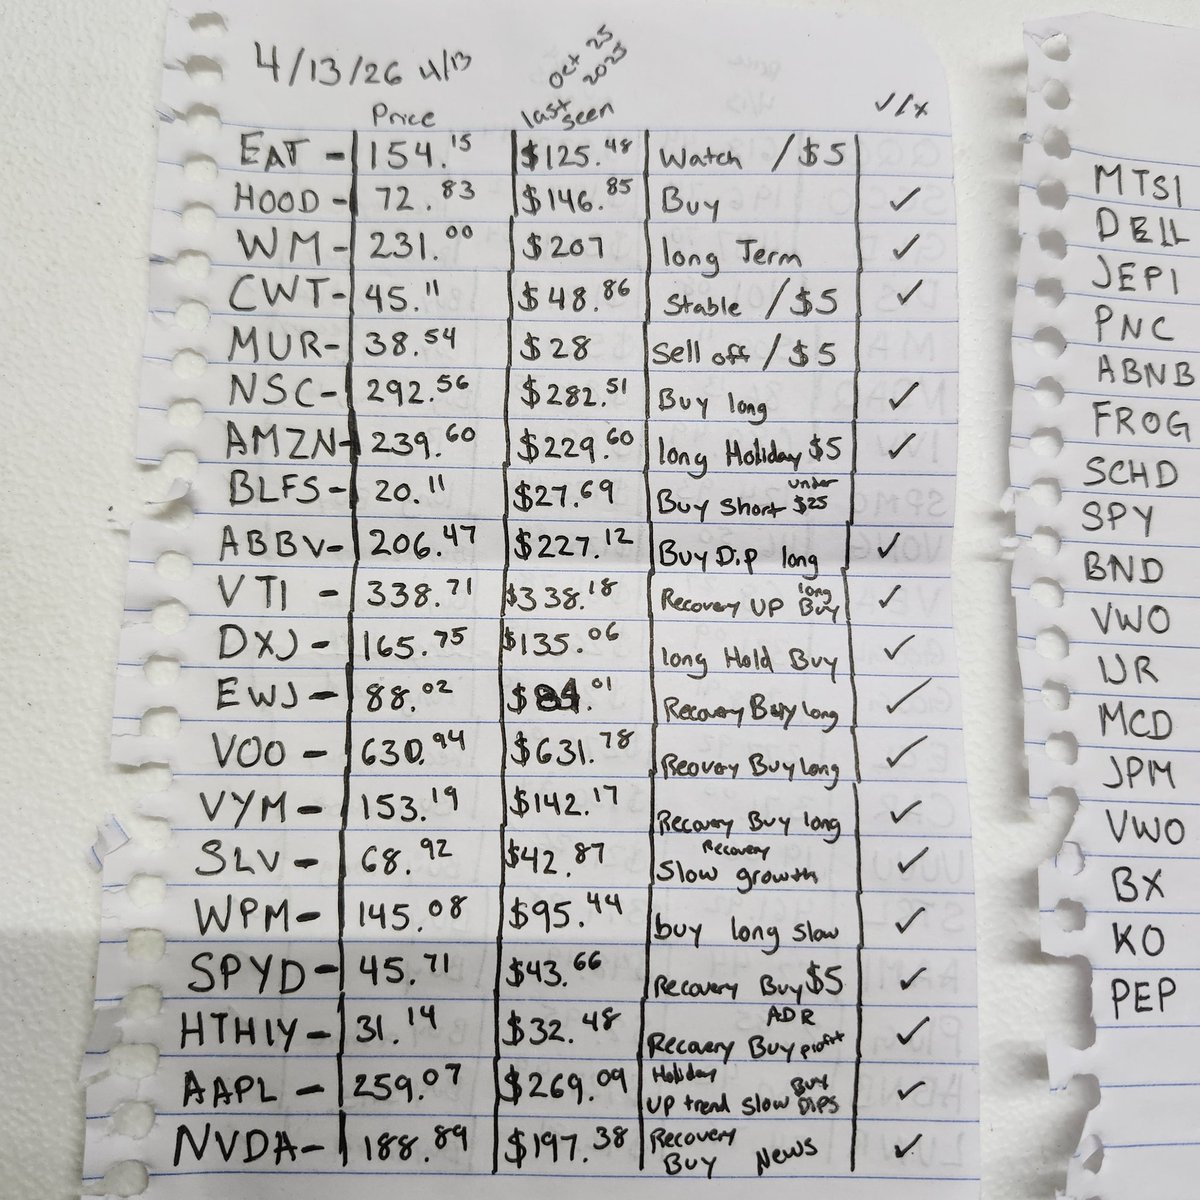 4/13/26 4/13
Oct 25
2025
Price last seen ✓/x
EAT - 154.15 $125.48 Watch / $5
HOOD - 72.83 $146.85 Buy ✓
WM - 231.00 $207 long Term ✓
CWT - 45.11 $48.86 Stable / $5 ✓
MUR - 38.54 $28 Sell off / $5
NSC - 292.56 $282.51 Buy long ✓
AMZN - 239.60 $229.60 long Holiday $5 ✓
BLFS - 20.11 $27.69 Buy Short under $25
ABBV - 206.47 $227.12 Buy Dip long ✓
VTI - 338.71 $338.18 Recovery UP long Buy ✓
DXJ - 165.75 $135.06 long Hold Buy ✓
EWJ - 88.02 $84.01 Recovery Buy long ✓
VOO - 630.94 $631.78 Reovery Buy long ✓
VYM - 153.19 $142.17 Recovery Buy long ✓
SLV - 68.92 $42.87 Recovery Slow growth ✓
WPM - 145.08 $95.44 buy long slow ✓
SPYD - 45.71 $43.66 Recovery Buy $5 ✓
HTHIY - 31.14 $32.48 Recovery Buy ADR profit ✓
AAPL - 259.07 $269.09 Holiday UP trend slow Buy DIPS ✓
NVDA - 188.89 $197.38 Recovery Buy News ✓
MTSI
DELL
JEPI
PNC
ABNB
FROG
SCHD
SPY
BND
VWO
IJR
MCD
JPM
VWO
BX
KO
PEP